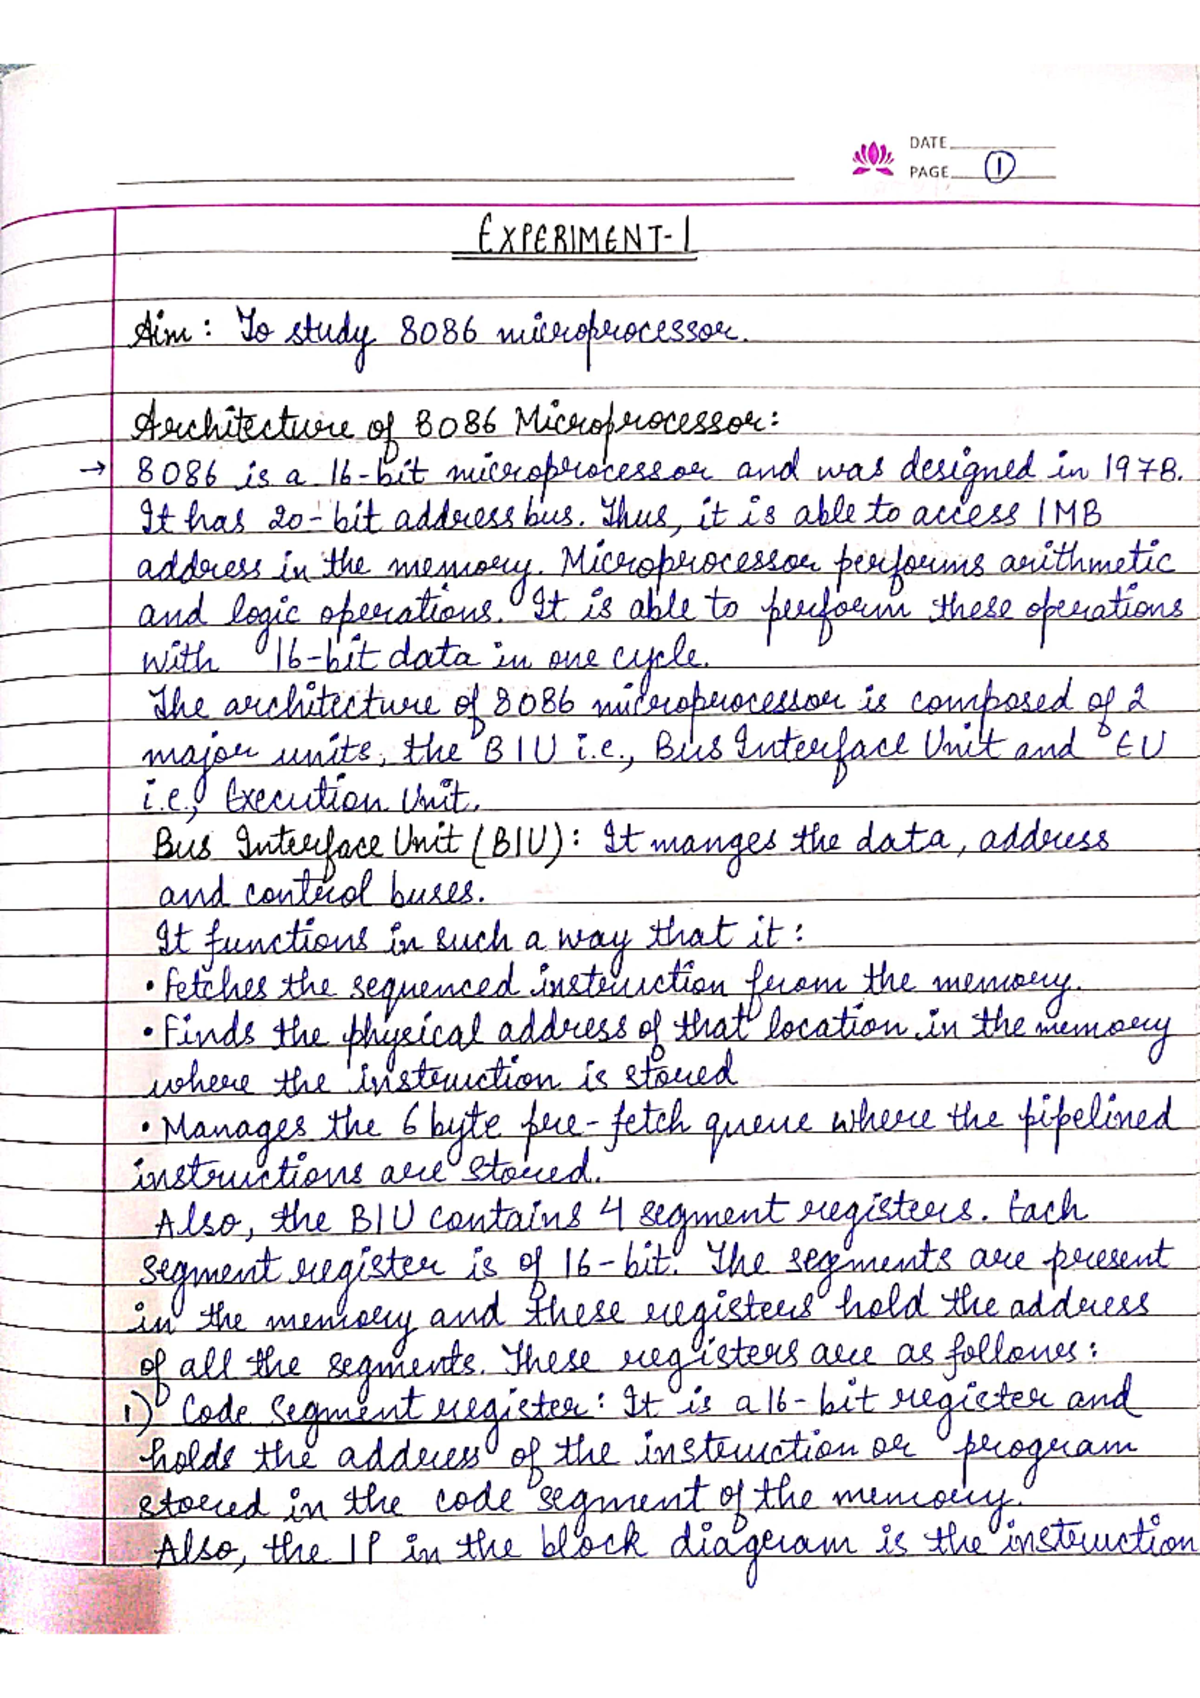 DATE
PAGE 1
EXPERIMENT-1
Aim: To study 8086 microprocessor.
Architecture of 8086 Microprocessor:
→ 8086 is a 16-bit microprocessor and was designed in 1978.
It has 20-bit address bus. Thus, it is able to access 1MB
address in the memory. Microprocessor performs arithmetic
and logic operations. It is able to perform these operations
with 16-bit data in one cycle.
The architecture of 8086 microprocessor is composed of 2
major units, the BIU i.e., Bus Interface Unit and EU
i.e., Execution Unit.
Bus Interface Unit (BIU): It manges the data, address
and control buses.
It functions in such a way that it:
• Fetches the sequenced instruction from the memory.
• Finds the physical address of that location in the memory
where the instruction is stored
• Manages the 6 byte pre-fetch queue where the pipelined
instructions are stored.
Also, the BIU contains 4 segment registers. Each
segment register is of 16-bit. The segments are present
in the memory and these registers hold the address
of all the segments. These registers are as follows:
1) Code Segment register: It is a 16-bit register and
holds the address of the instruction or program
stored in the code segment of the memory.
Also, the IP in the block diagram is the instruction